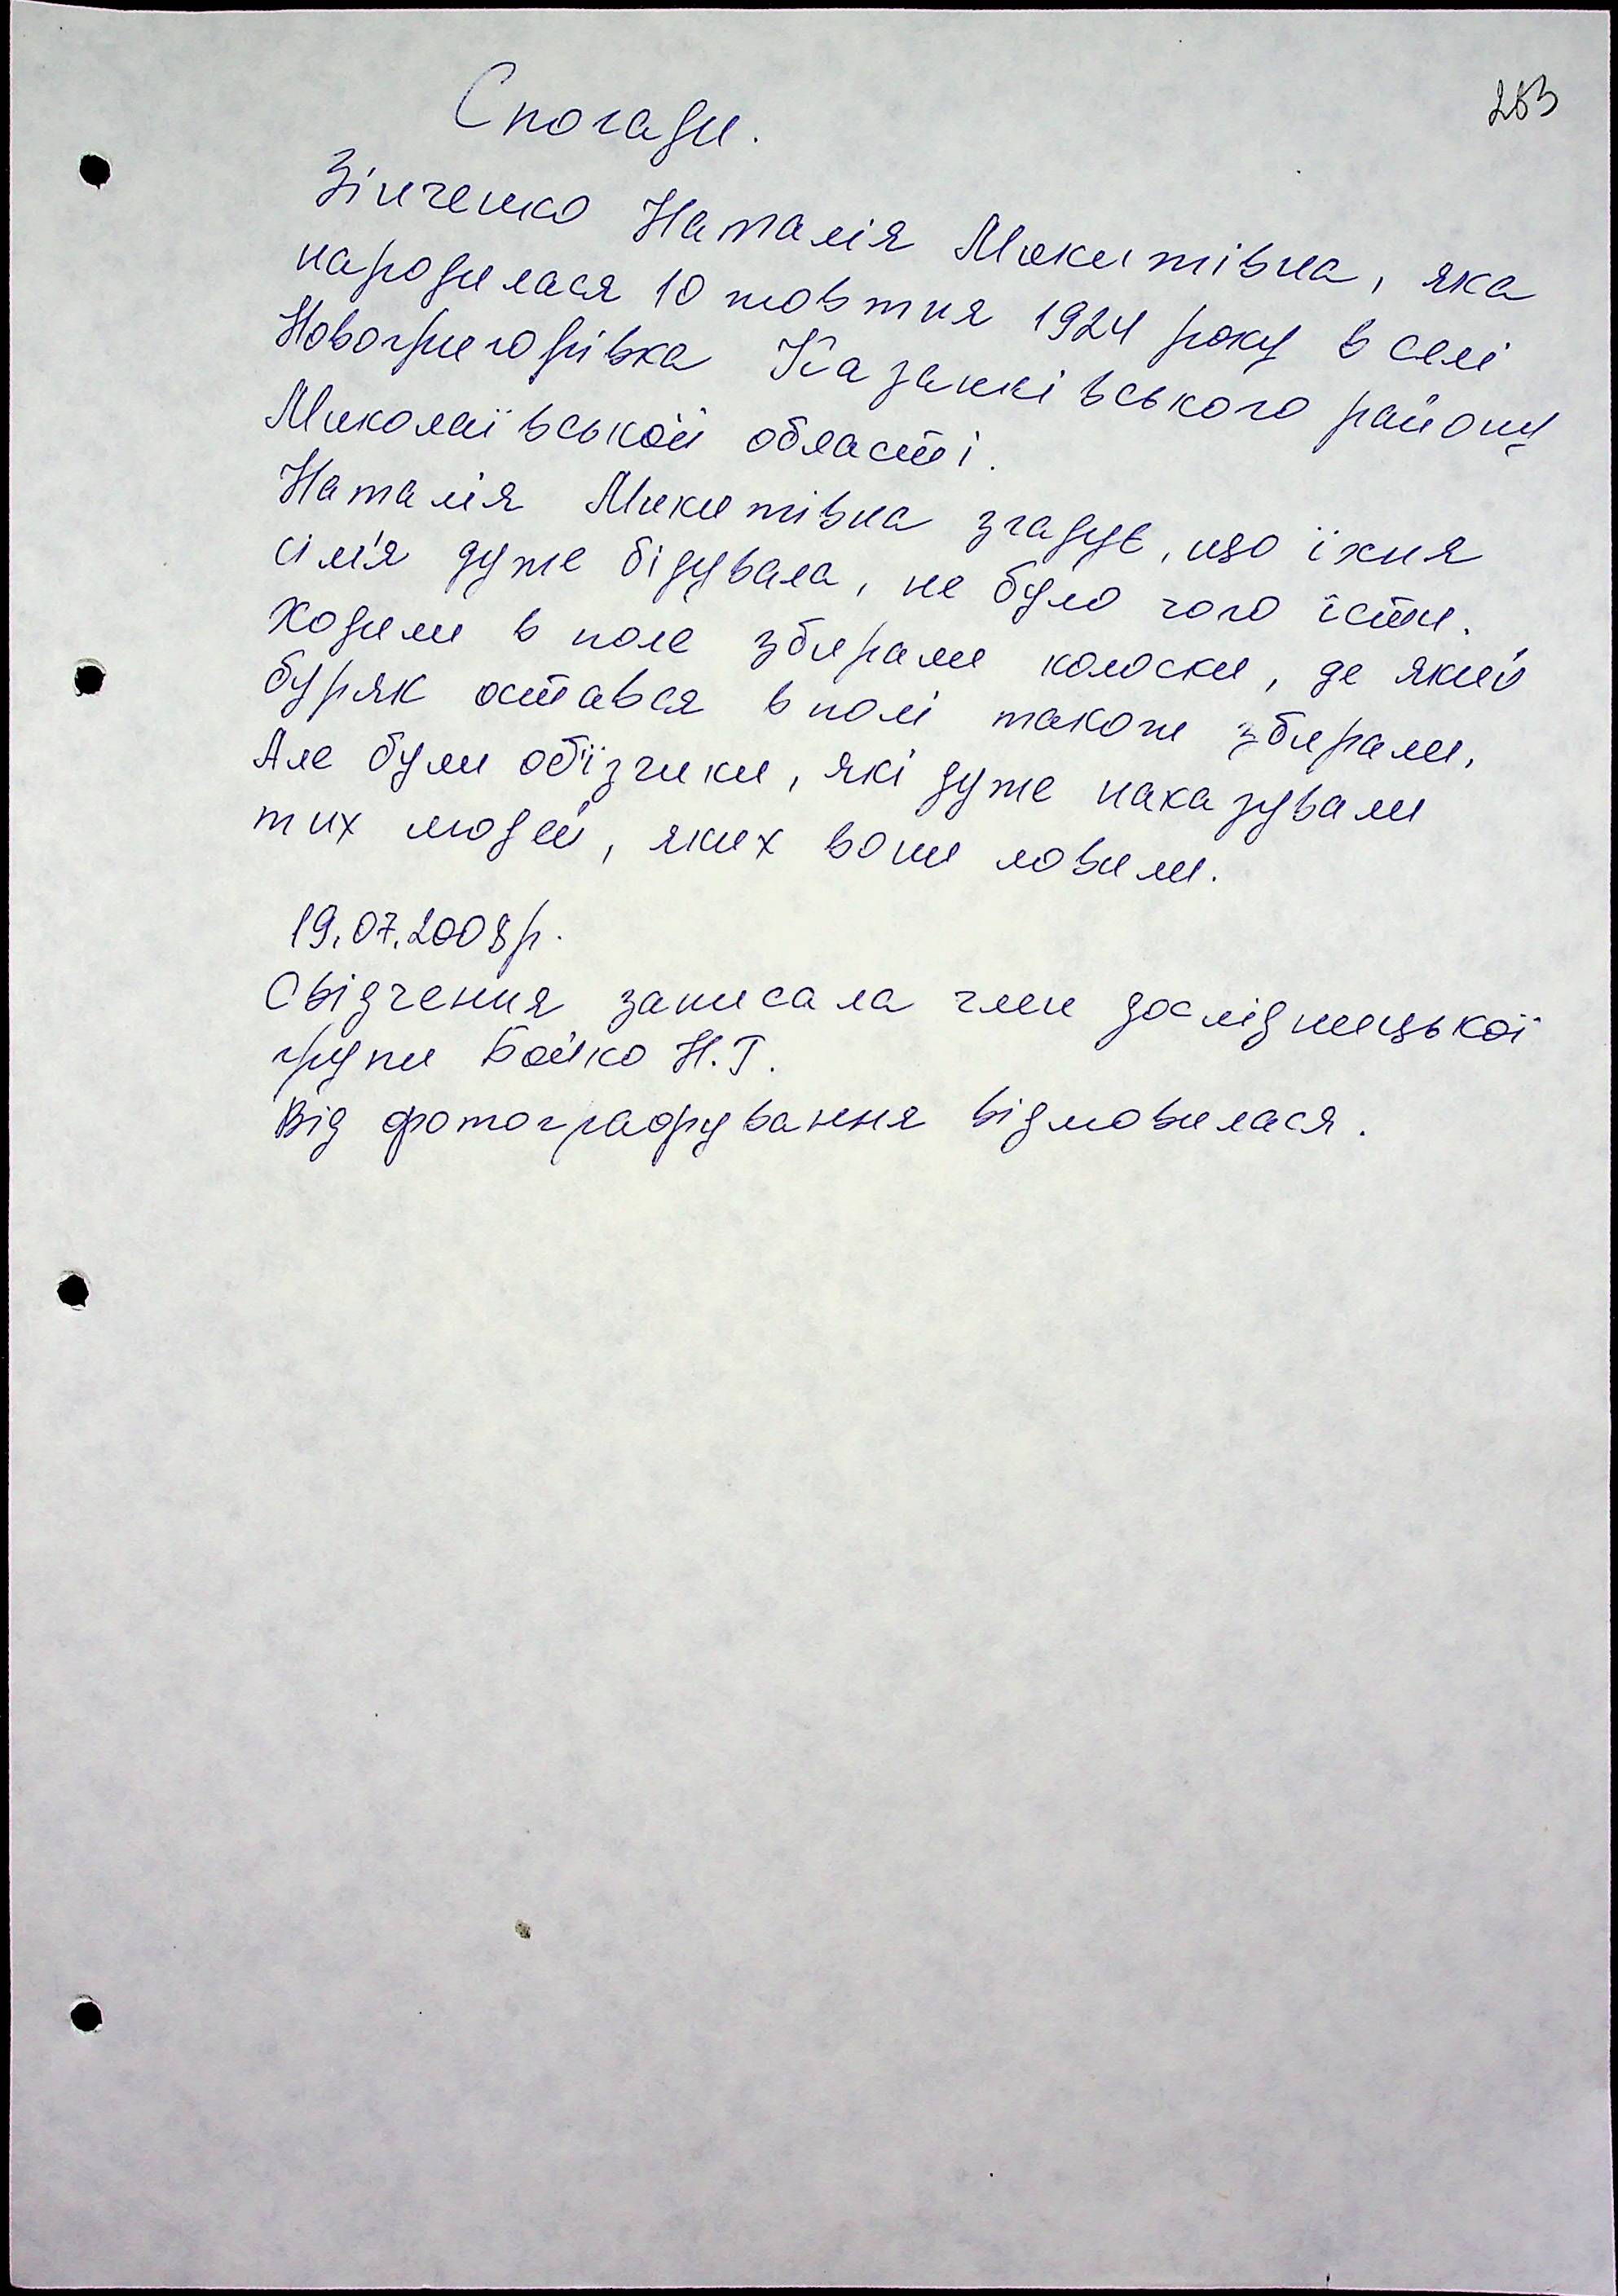 263
Спогади.
Зінченко Наталія Микитівна, яка
народилася 10 жовтня 1924 року в селі
Новогригорівка Казанківського району
Миколаївської області.
Наталія Микитівна згадує, що їхня
сім'я дуже бідувала, не було чого їсти.
Ходили в поле збирали колоски, де який
буряк остався в полі також збирали.
Але були об'їзчики, які дуже наказували
тих людей, яких вони ловили.
19.07.2008р.
Свідчення записала член дослідницької
групи Бойко Н.Г.
Від фотографування відмовилася.